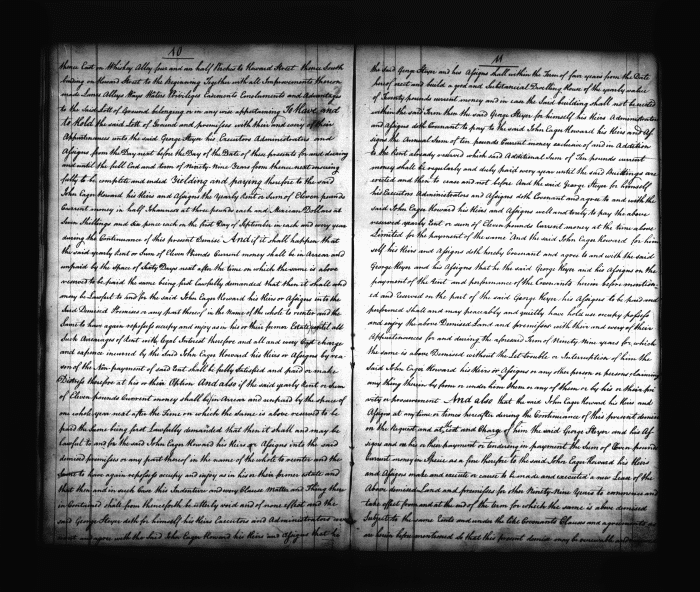 10
thence East on Whiskey Alley four and one half Perches to Howard Street thence South
binding on Howard Street to the Beginning Together with all Improvements thereon
made Lanes Alleys Ways Waters Privileges Easements Emoluments and Advantages
to the said Lott of Ground belonging or in any wise appertaining To Have and
to Hold the said Lott of Ground and premisses with their and every of their
Appurtenances unto the said George Heyer his Executors Administrators and
Assigns from the Day next before the Day of the Date of these presents for and during
and until the full End and Term of Ninety Nine Years from thence next ensuing
fully to be complete and ended Yielding and paying therefor to the said
John Eager Howard his Heirs and Assigns the Yearly Rent or Sum of Eleven pounds
Current money in half Johannes at three pounds each and Mexican Dollars at
Seven Shillings and six pence each on the first Day of September in each and every year
during the Continuance of this present Demise And if it shall happen that
the said yearly Rent or Sum of Eleven Pounds Current money shall be in Arrear and
unpaid by the Space of Sixty Days next after the time on which the same is above
reserved to be paid the same being first Lawfully demanded that then it shall and
may be Lawful to and for the said John Eager Howard his Heirs or Assigns into the
said Demised Premises or any part thereof in the Name of the whole to reenter and the
Same to have again repossess occupy and enjoy as in his or their former Estate until all
Such Arrearages of Rent with legal Interest therefor and all and every Legal charge
and expence incurred by the said John Eager Howard his Heirs or Assigns by rea
son of the Non payment of said rent shall be fully satisfied and paid or make
Distress therefor at his or their Option And also if the said yearly Rent or Sum
of Eleven Pounds Current money shall be in Arrear and unpaid by the space of
one whole year next after the Time on which the same is above reserved to be
paid the same being first Lawfully demanded that then it shall and may be
Lawful to and for the said John Eager Howard his Heirs or Assigns into the said
demised premisses or any part thereof in the name of the whole to reenter and the
Same to have again repossess occupy and enjoy as in his or their former estate and
that then and in such case this Indenture and every Clause Matter and Thing there
in contained shall from thenceforth be utterly void and of none effect and the
said George Heyer doth for himself his Heirs Executors and Administrators
and agree with the said John Eager Howard his Heirs and Assigns that he
11
the said George Heyer and his Assigns shall within the Term of four years from the Date
hereof erect and build a good and Substantial Dwelling House of the yearly value
of Twenty pounds current money and in case the said building shall not be erected
within the said Term then the said George Heyer for himself his Heirs Administrators
and Assigns doth Covenant to pay to the said John Eager Howard his Heirs and As
signs the Annual Sum of ten pounds Current money exclusive of and in Addition
to the Rent already reserved which said Additional Sum of Ten pounds current
money shall be regularly and duly paid every year until the said Buildings are
erected and then to cease and not before And the said George Heyer for himself
his Executors Administrators and Assigns doth Covenant and agree to and with the
said John Eager Howard his Heirs and Assigns well and truly to pay the above
reserved yearly Rent or sum of Eleven pounds Current money at the time above
Limited for the payment of the same And the said John Eager Howard for him
self his Heirs and Assigns doth hereby Covenant and agree to and with the said
George Heyer and his Assigns that he the said George Heyer and his Assigns on the
payment of the Rent and performance of the Covenants herein before mention
ed and reserved on the part of the said George Heyer his Assigns to be paid and
performed Shall and may peaceably and quietly have hold use occupy possess
and enjoy the above Demised Land and premisses with their and every of their
Appurtenances for and during the aforesaid Term of Ninety Nine years for which
the same is above Demised without the Let trouble or Interruption of him the
Said John Eager Howard his Heirs or Assigns or any other person or persons claiming
any thing therein by from or under him them or any of them or by his or their pri
vity or procurement And also that the said John Eager Howard his Heirs and
Assigns at any time or times hereafter during the Continuance of this present demise
on the Request and at cost and Charge of him the said George Heyer and his As
signs and on his or their payment or tendering in payment the Sum of Eleven pounds
Current money in Specie as a fine therefor to the said John Eager Howard his Heirs
and Assigns make and execute or cause to be made and executed a new Lease of the
Above demised Land and premisses for other Ninety Nine Years to commence and
take effect from and at the end of the term for which the same is above demised
Subject to the same Rents and under the like Covenants Clauses and agreements as
are herein before mentioned so that this present demise may be renewable and